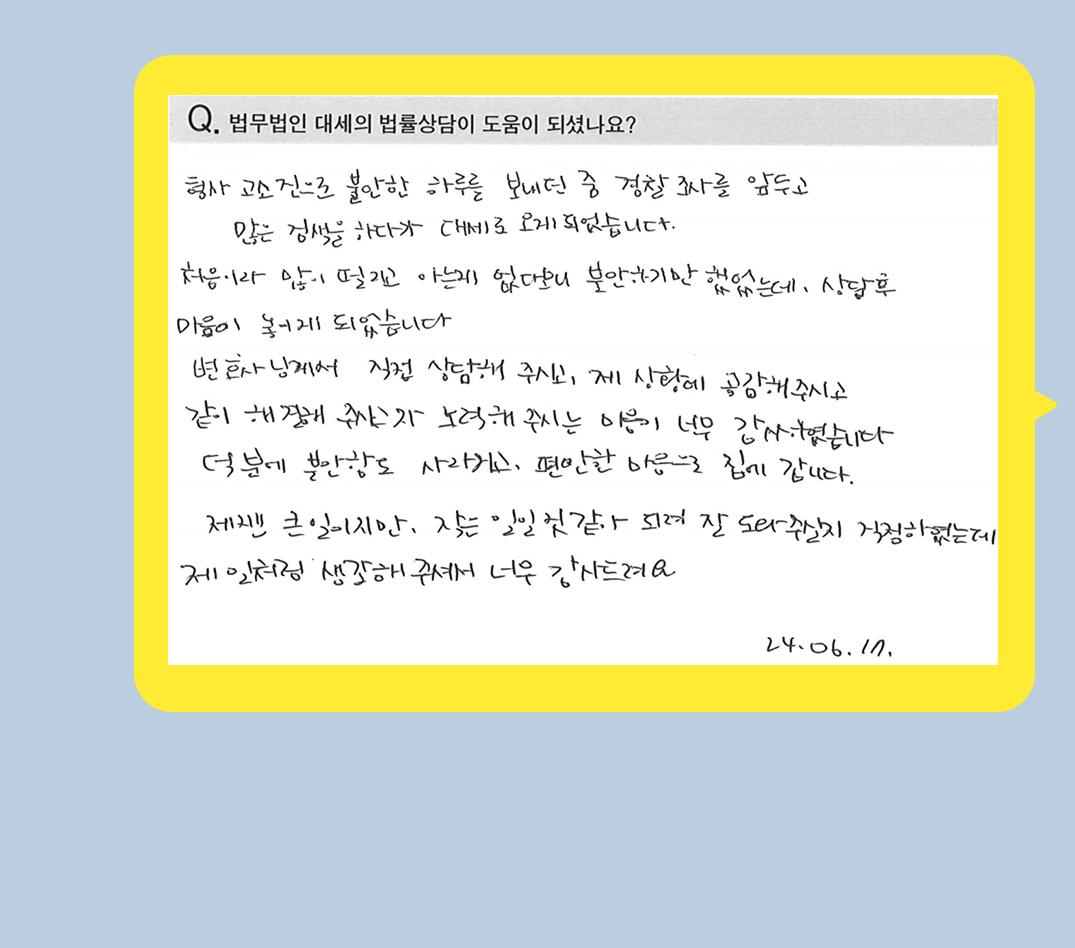 Q. 법무법인 대세의 법률상담이 도움이 되셨나요?
형사 고소건으로 불안한 하루를 보내던 중 경찰 조사를 앞두고
많은 검색을 하다가 대세로 오게 되었습니다.
처음이라 많이 떨리고 아는게 없다보니 불안하기만 했었는데, 상담 후
마음이 놓이게 되었습니다
변호사님께서 직접 상담해 주시고, 제 상황에 공감해주시고
같이 해결해 주시고자 노력해 주시는 마음이 너무 감사하였습니다
덕분에 불안함도 사라지고, 편안한 마음으로 집에 갑니다.
제겐 큰일이지만, 작은 일일 것 같아 되려 잘 도와주실지 걱정하였는데
제 일처럼 생각해 주셔서 너무 감사드려요
24.06.17.